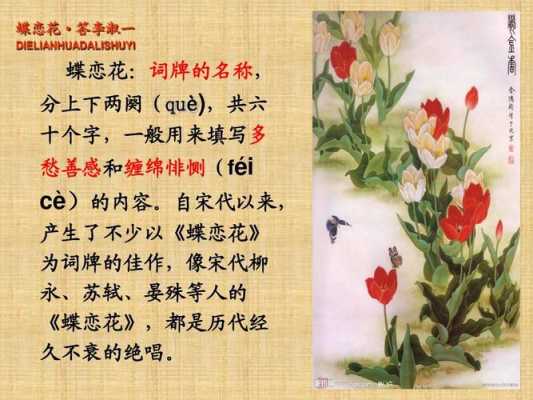 蝶恋花·答李淑一
DIELIANHUADALISHUYI
蝶恋花：词牌的名称，
分上下两阕（què)，共六
十个字，一般用来填写多
愁善感和缠绵悱恻（féi
cè）的内容。自宋代以来，
产生了不少以《蝶恋花》
为词牌的佳作，像宋代柳
永、苏轼、晏殊等人的
《蝶恋花》，都是历代经
久不衰的绝唱。